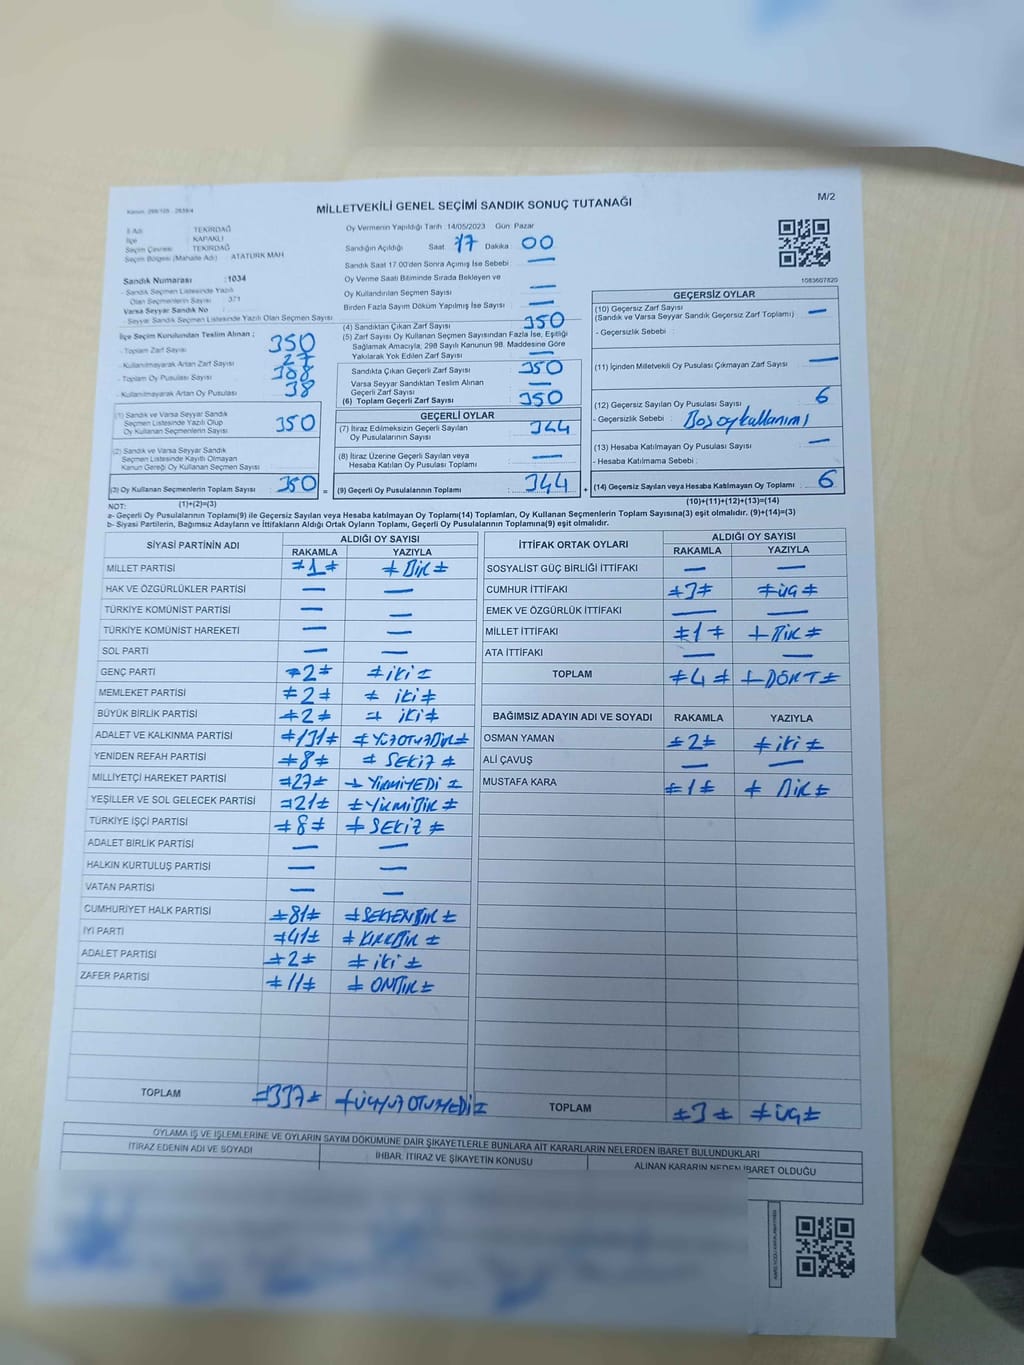 Kanun: 298/105 - 2839/4
MİLLETVEKİLİ GENEL SEÇİMİ SANDIK SONUÇ TUTANAĞI
M/2
İl Adı : TEKİRDAĞ
İlçe : KAPAKLI
Seçim Çevresi : TEKİRDAĞ
Seçim Bölgesi (Mahalle Adı) : ATATÜRK MAH
Sandık Numarası :1034
- Sandık Seçmen Listesinde Yazılı
Olan Seçmenlerin Sayısı : 371
Varsa Seyyar Sandık No :
- Seyyar Sandık Seçmen Listesinde Yazılı Olan Seçmen Sayısı :
İlçe Seçim Kurulundan Teslim Alınan ;
- Toplam Zarf Sayısı 350
- Kullanılmayarak Artan Zarf Sayısı 27
- Toplam Oy Pusulası Sayısı 388
- Kullanılmayarak Artan Oy Pusulası 38
(1) Sandık ve Varsa Seyyar Sandık
Seçmen Listesinde Yazılı Olup
Oy Kullanan Seçmenlerin Sayısı 350
(2) Sandık ve Varsa Seyyar Sandık
Seçmen Listesinde Kayıtlı Olmayan
Kanun Gereği Oy Kullanan Seçmen Sayısı :
(3) Oy Kullanan Seçmenlerin Toplam Sayısı : 350 =
(1)+(2)=(3)
Oy Vermenin Yapıldığı Tarih :14/05/2023 Gün: Pazar
Sandığın Açıldığı Saat: 17 Dakika : 00
Sandık Saat 17.00'den Sonra Açımış İse Sebebi : —
Oy Verme Saati Bitiminde Sırada Bekleyen ve
Oy Kullandırılan Seçmen Sayısı : —
Birden Fazla Sayım Döküm Yapılmış İse Sayısı : —
(4) Sandıktan Çıkan Zarf Sayısı 350
(5) Zarf Sayısı Oy Kullanan Seçmen Sayısından Fazla İse, Eşitliği
Sağlamak Amacıyla, 298 Sayılı Kanunun 98. Maddesine Göre
Yakılarak Yok Edilen Zarf Sayısı —
Sandıkta Çıkan Geçerli Zarf Sayısı 350
Varsa Seyyar Sandıktan Teslim Alınan
Geçerli Zarf Sayısı —
(6) Toplam Geçerli Zarf Sayısı 350
GEÇERLİ OYLAR
(7) İtiraz Edilmeksizin Geçerli Sayılan
Oy Pusulalarının Sayısı 344
(8) İtiraz Üzerine Geçerli Sayılan veya
Hesaba Katılan Oy Pusulası Toplamı —
(9) Geçerli Oy Pusulalarının Toplamı 344 +
1083607820
GEÇERSİZ OYLAR
(10) Geçersiz Zarf Sayısı
(Sandık ve Varsa Seyyar Sandık Geçersiz Zarf Toplamı) —
- Geçersizlik Sebebi :
(11) İçinden Milletvekili Oy Pusulası Çıkmayan Zarf Sayısı —
(12) Geçersiz Sayılan Oy Pusulası Sayısı 6
- Geçersizlik Sebebi : Boş oy kullanımı
(13) Hesaba Katılmayan Oy Pusulası Sayısı —
- Hesaba Katılmama Sebebi :
(14) Geçersiz Sayılan veya Hesaba Katılmayan Oy Toplamı : 6
(10)+(11)+(12)+(13)=(14)
NOT:
a- Geçerli Oy Pusulalarının Toplamı(9) ile Geçersiz Sayılan veya Hesaba katılmayan Oy Toplamı(14) Toplamları, Oy Kullanan Seçmenlerin Toplam Sayısına(3) eşit olmalıdır. (9)+(14)=(3)
b- Siyasi Partilerin, Bağımsız Adayların ve İttifakların Aldığı Ortak Oyların Toplamı, Geçerli Oy Pusulalarının Toplamına(9) eşit olmalıdır.
SİYASİ PARTİNİN ADI ALDIĞI OY SAYISI
RAKAMLA YAZIYLA
MİLLET PARTİSİ ≠1≠ ≠BİR≠
HAK VE ÖZGÜRLÜKLER PARTİSİ — —
TÜRKİYE KOMÜNİST PARTİSİ — —
TÜRKİYE KOMÜNİST HAREKETİ — —
SOL PARTİ — —
GENÇ PARTİ ≠2≠ ≠iki≠
MEMLEKET PARTİSİ ≠2≠ ≠iki≠
BÜYÜK BİRLİK PARTİSİ ≠2≠ ≠iki≠
ADALET VE KALKINMA PARTİSİ ≠131≠ ≠YÜZOTUZBİR≠
YENİDEN REFAH PARTİSİ ≠8≠ ≠SEKİZ≠
MİLLİYETÇİ HAREKET PARTİSİ ≠27≠ ≠YİRMİYEDİ≠
YEŞİLLER VE SOL GELECEK PARTİSİ ≠21≠ ≠YİRMİBİR≠
TÜRKİYE İŞÇİ PARTİSİ ≠8≠ ≠SEKİZ≠
ADALET BİRLİK PARTİSİ — —
HALKIN KURTULUŞ PARTİSİ — —
VATAN PARTİSİ — —
CUMHURİYET HALK PARTİSİ ≠81≠ ≠SEKSENBİR≠
İYİ PARTİ ≠41≠ ≠KIRKBİR≠
ADALET PARTİSİ ≠2≠ ≠iki≠
ZAFER PARTİSİ ≠11≠ ≠ONBİR≠
TOPLAM ≠337≠ ≠ÜÇYÜZOTUZYEDİ≠
İTTİFAK ORTAK OYLARI ALDIĞI OY SAYISI
RAKAMLA YAZIYLA
SOSYALİST GÜÇ BİRLİĞİ İTTİFAKI — —
CUMHUR İTTİFAKI ≠3≠ ≠ÜÇ≠
EMEK VE ÖZGÜRLÜK İTTİFAKI — —
MİLLET İTTİFAKI ≠1≠ ≠BİR≠
ATA İTTİFAKI — —
TOPLAM ≠4≠ ≠DÖRT≠
BAĞIMSIZ ADAYIN ADI VE SOYADI RAKAMLA YAZIYLA
OSMAN YAMAN ≠2≠ ≠iki≠
ALİ ÇAVUŞ — —
MUSTAFA KARA ≠1≠ ≠BİR≠
TOPLAM ≠3≠ ≠ÜÇ≠
OYLAMA İŞ VE İŞLEMLERİNE VE OYLARIN SAYIM DÖKÜMÜNE DAİR ŞİKAYETLERLE BUNLARA AİT KARARLARIN NELERDEN İBARET BULUNDUKLARI
İTİRAZ EDENİN ADI VE SOYADI İHBAR, İTİRAZ VE ŞİKAYETİN KONUSU ALINAN KARARIN NEDEN İBARET OLDUĞU